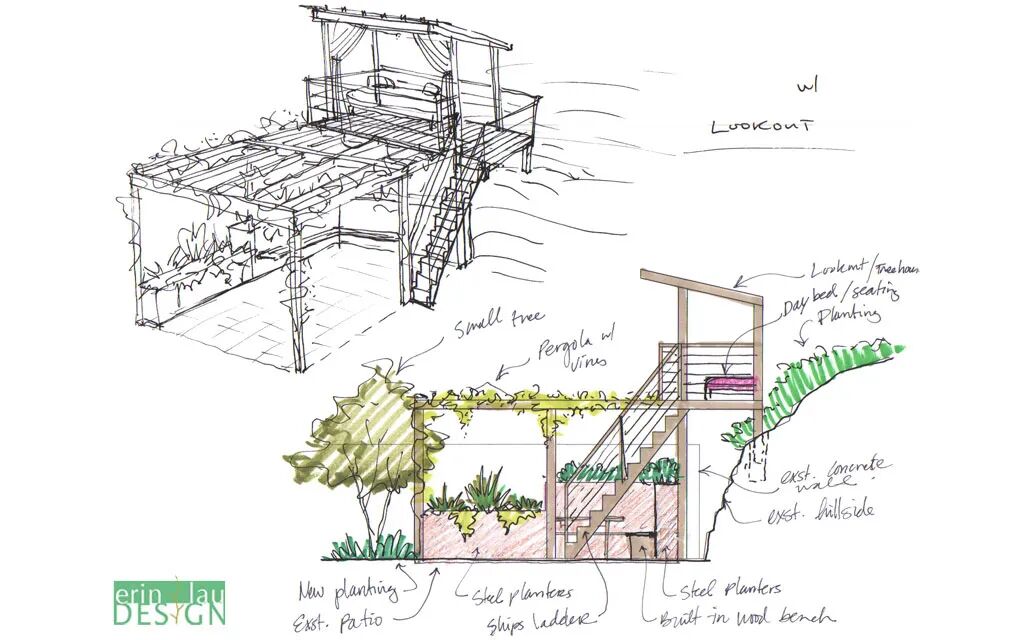 w/
Lookout
Lookout/treehous
Day bed/seating
Planting
Small tree
Pergola w/
vines
exst. concrete
wall
exst. hillside
New planting
Exst. patio
Steel planters
Ships ladder
Steel planters
Built in wood bench
erin lau
DESIGN